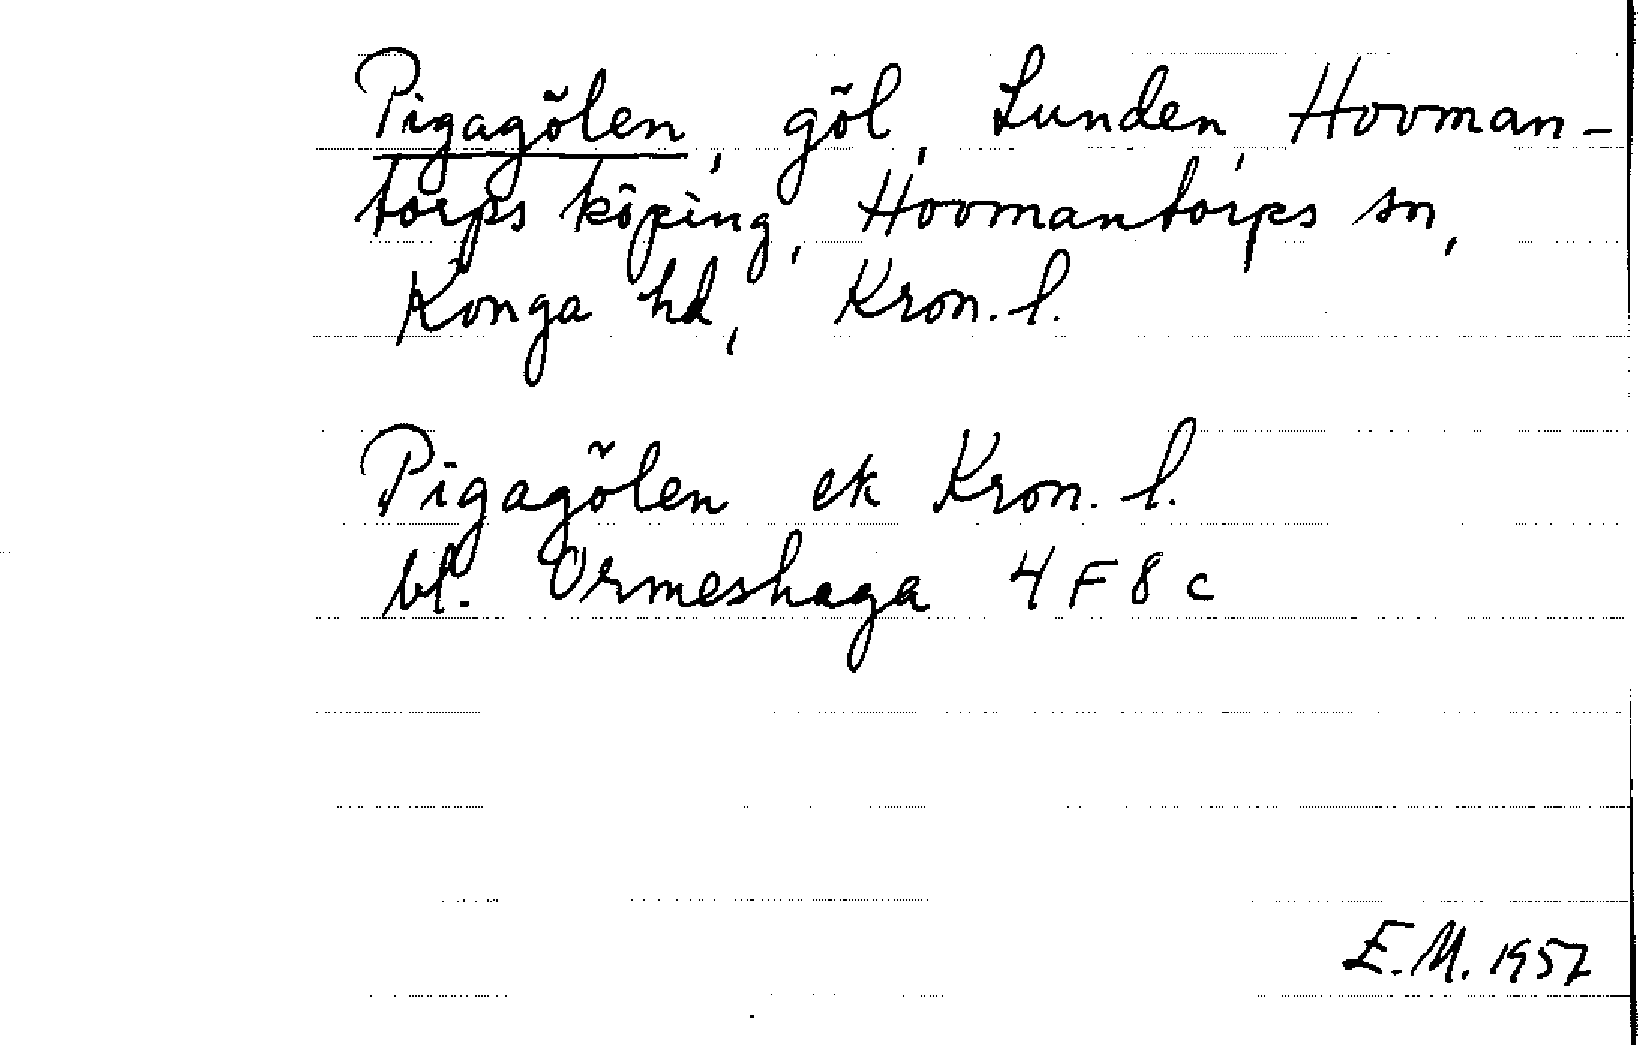 Pigagölen, göl, Lunden, Hovman-
torps köping, Hovmantorps sn,
Konga hd, Kron. l.
Pigagölen ek Kron. l.
bl. Ormeshaga 4 F 8 c
E.M. 1957